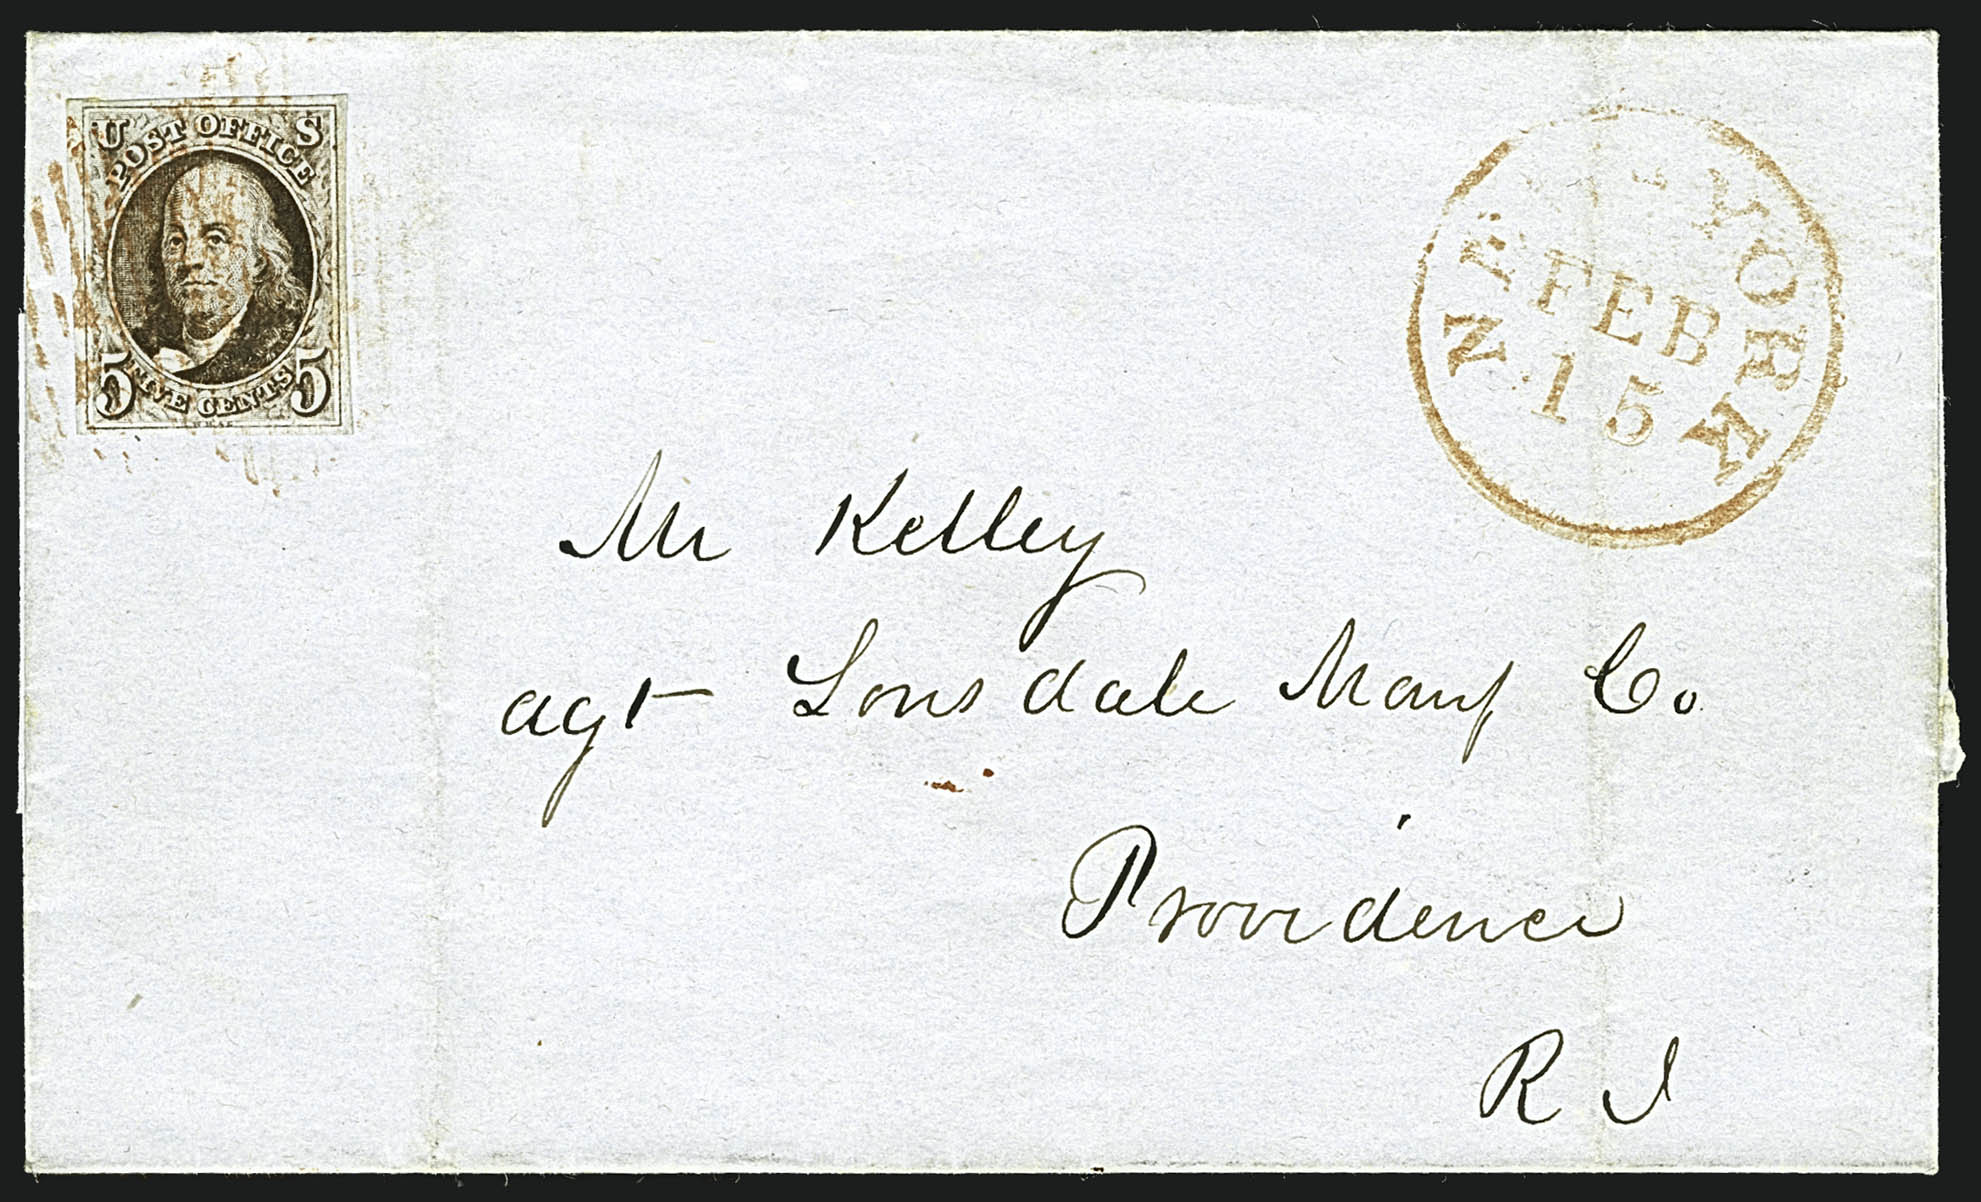 U S
POST OFFICE
5 FIVE CENTS 5
NEW YORK
FEB
15
Mr Kelley
agt Lonsdale Manf Co
Providence
R I